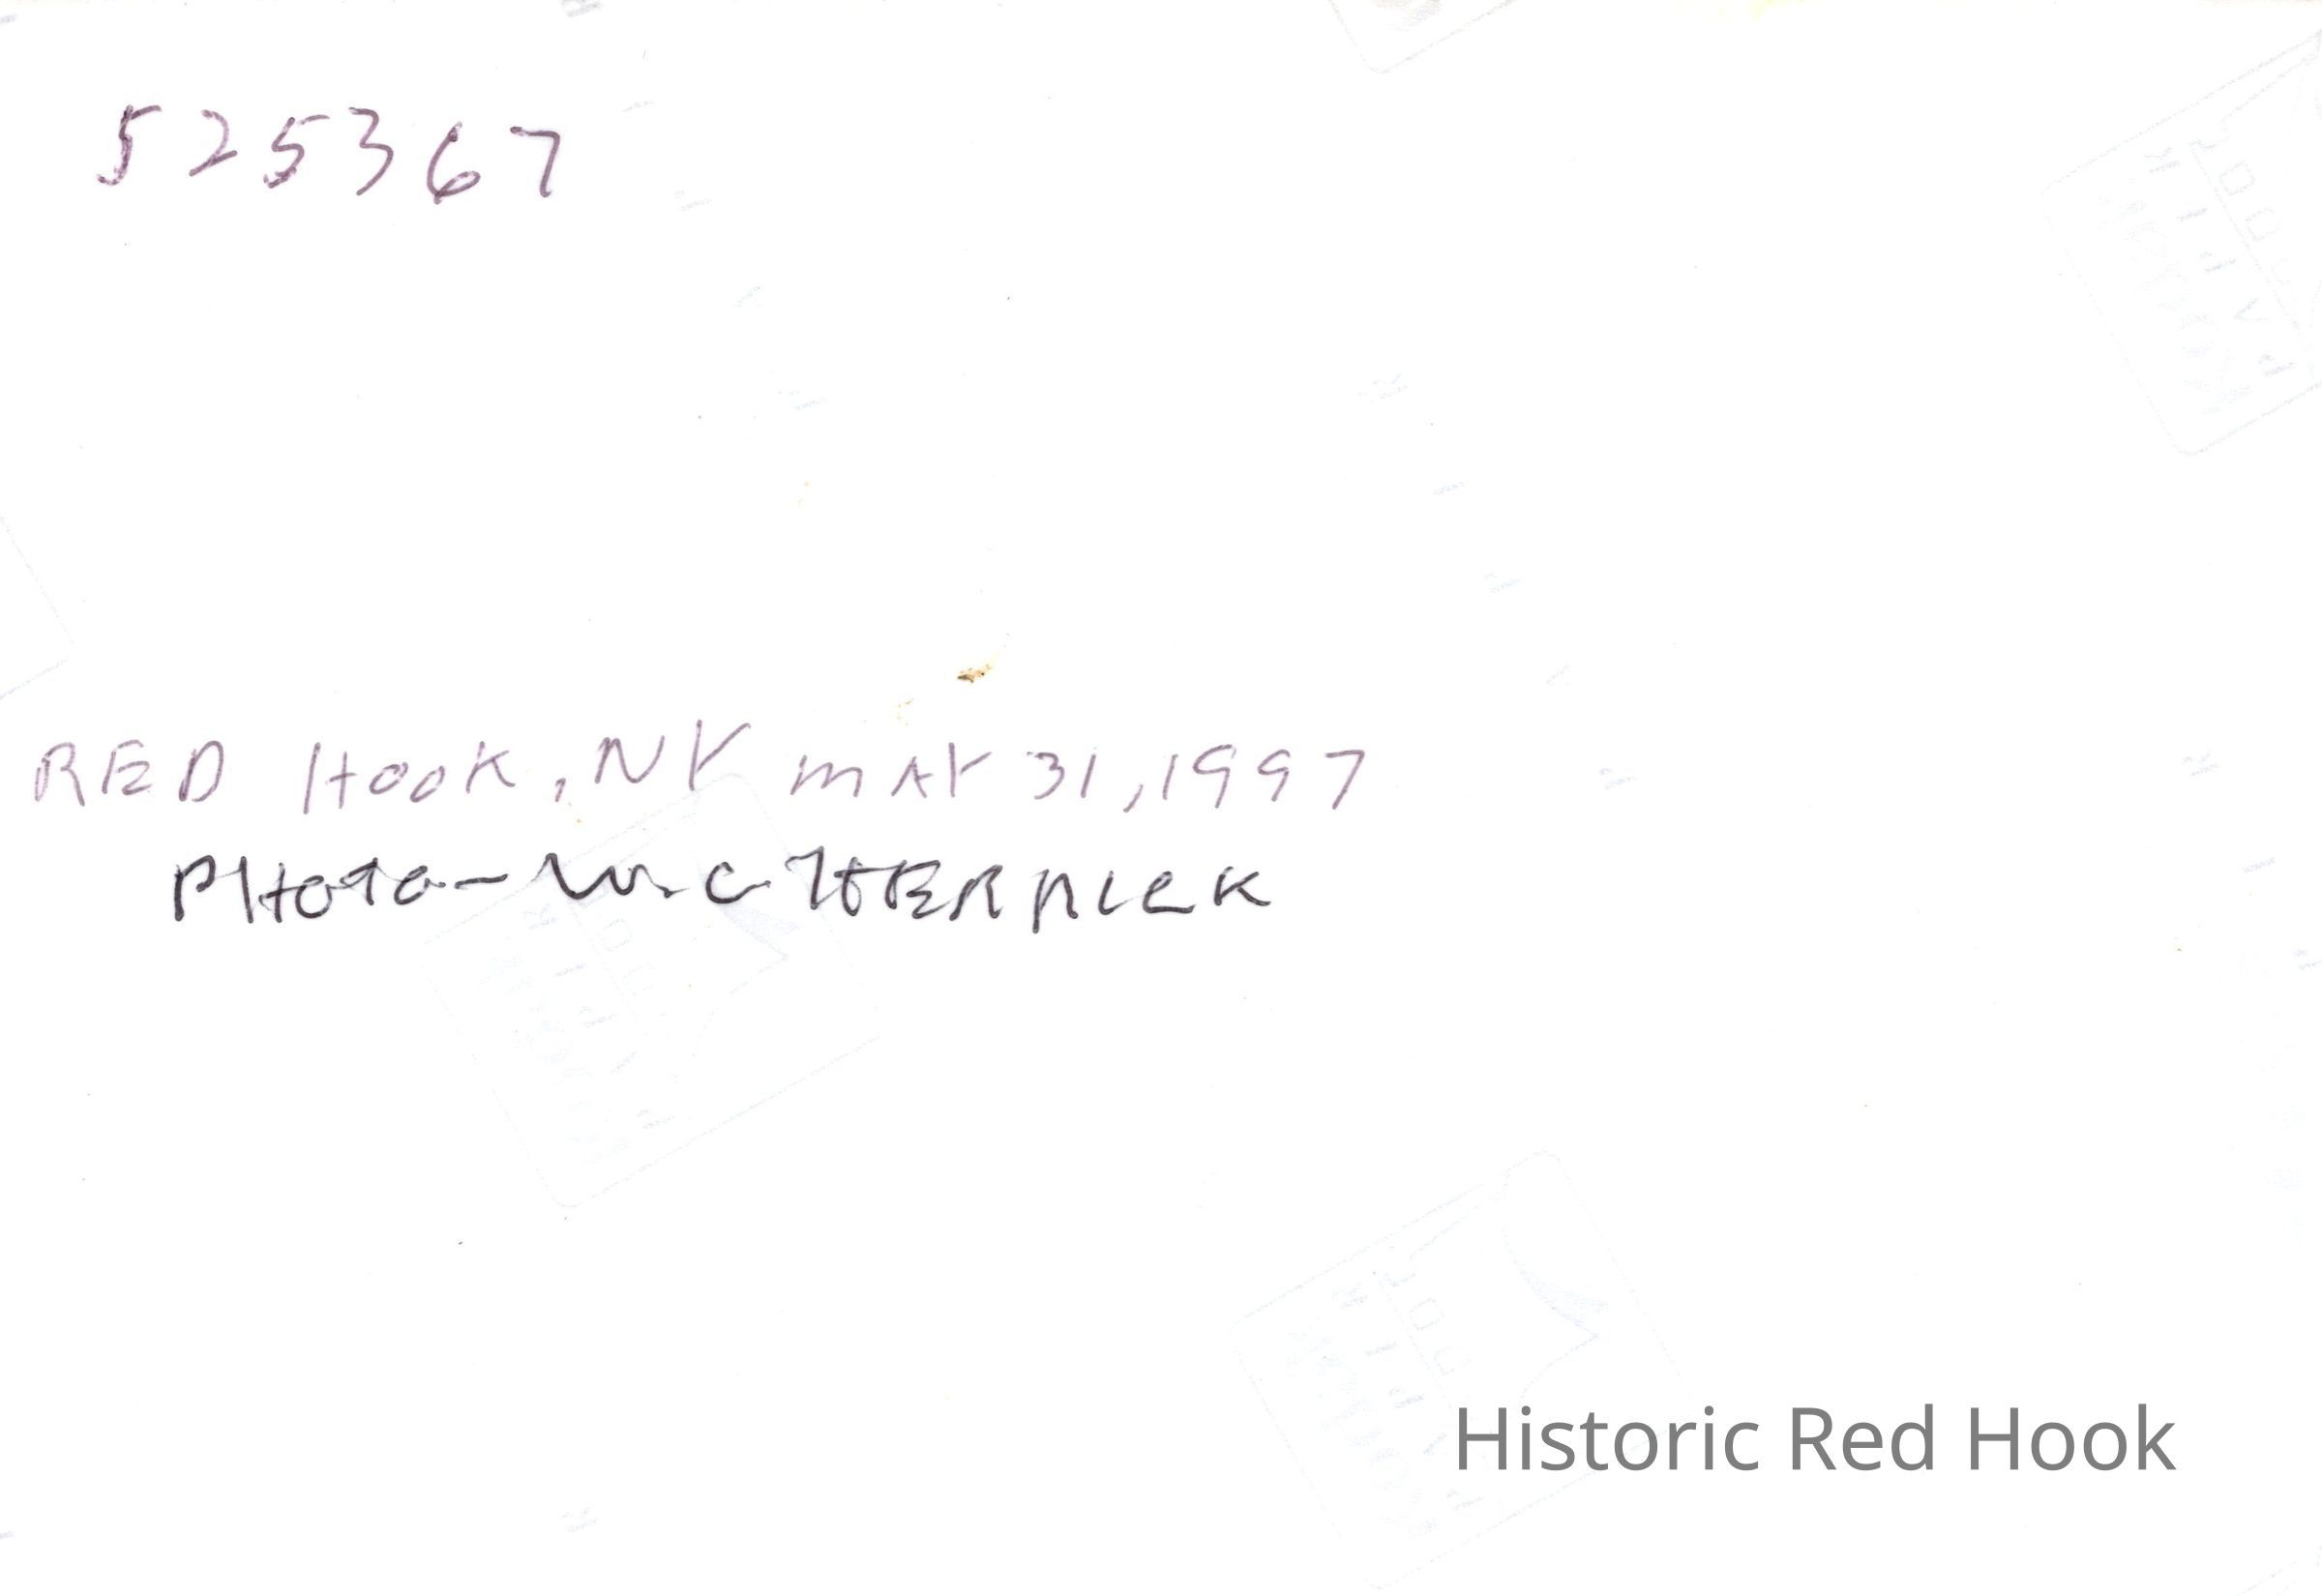 525367
RED HOOK, NY MAY 31, 1997
PHOTO-W.C.
Historic Red Hook